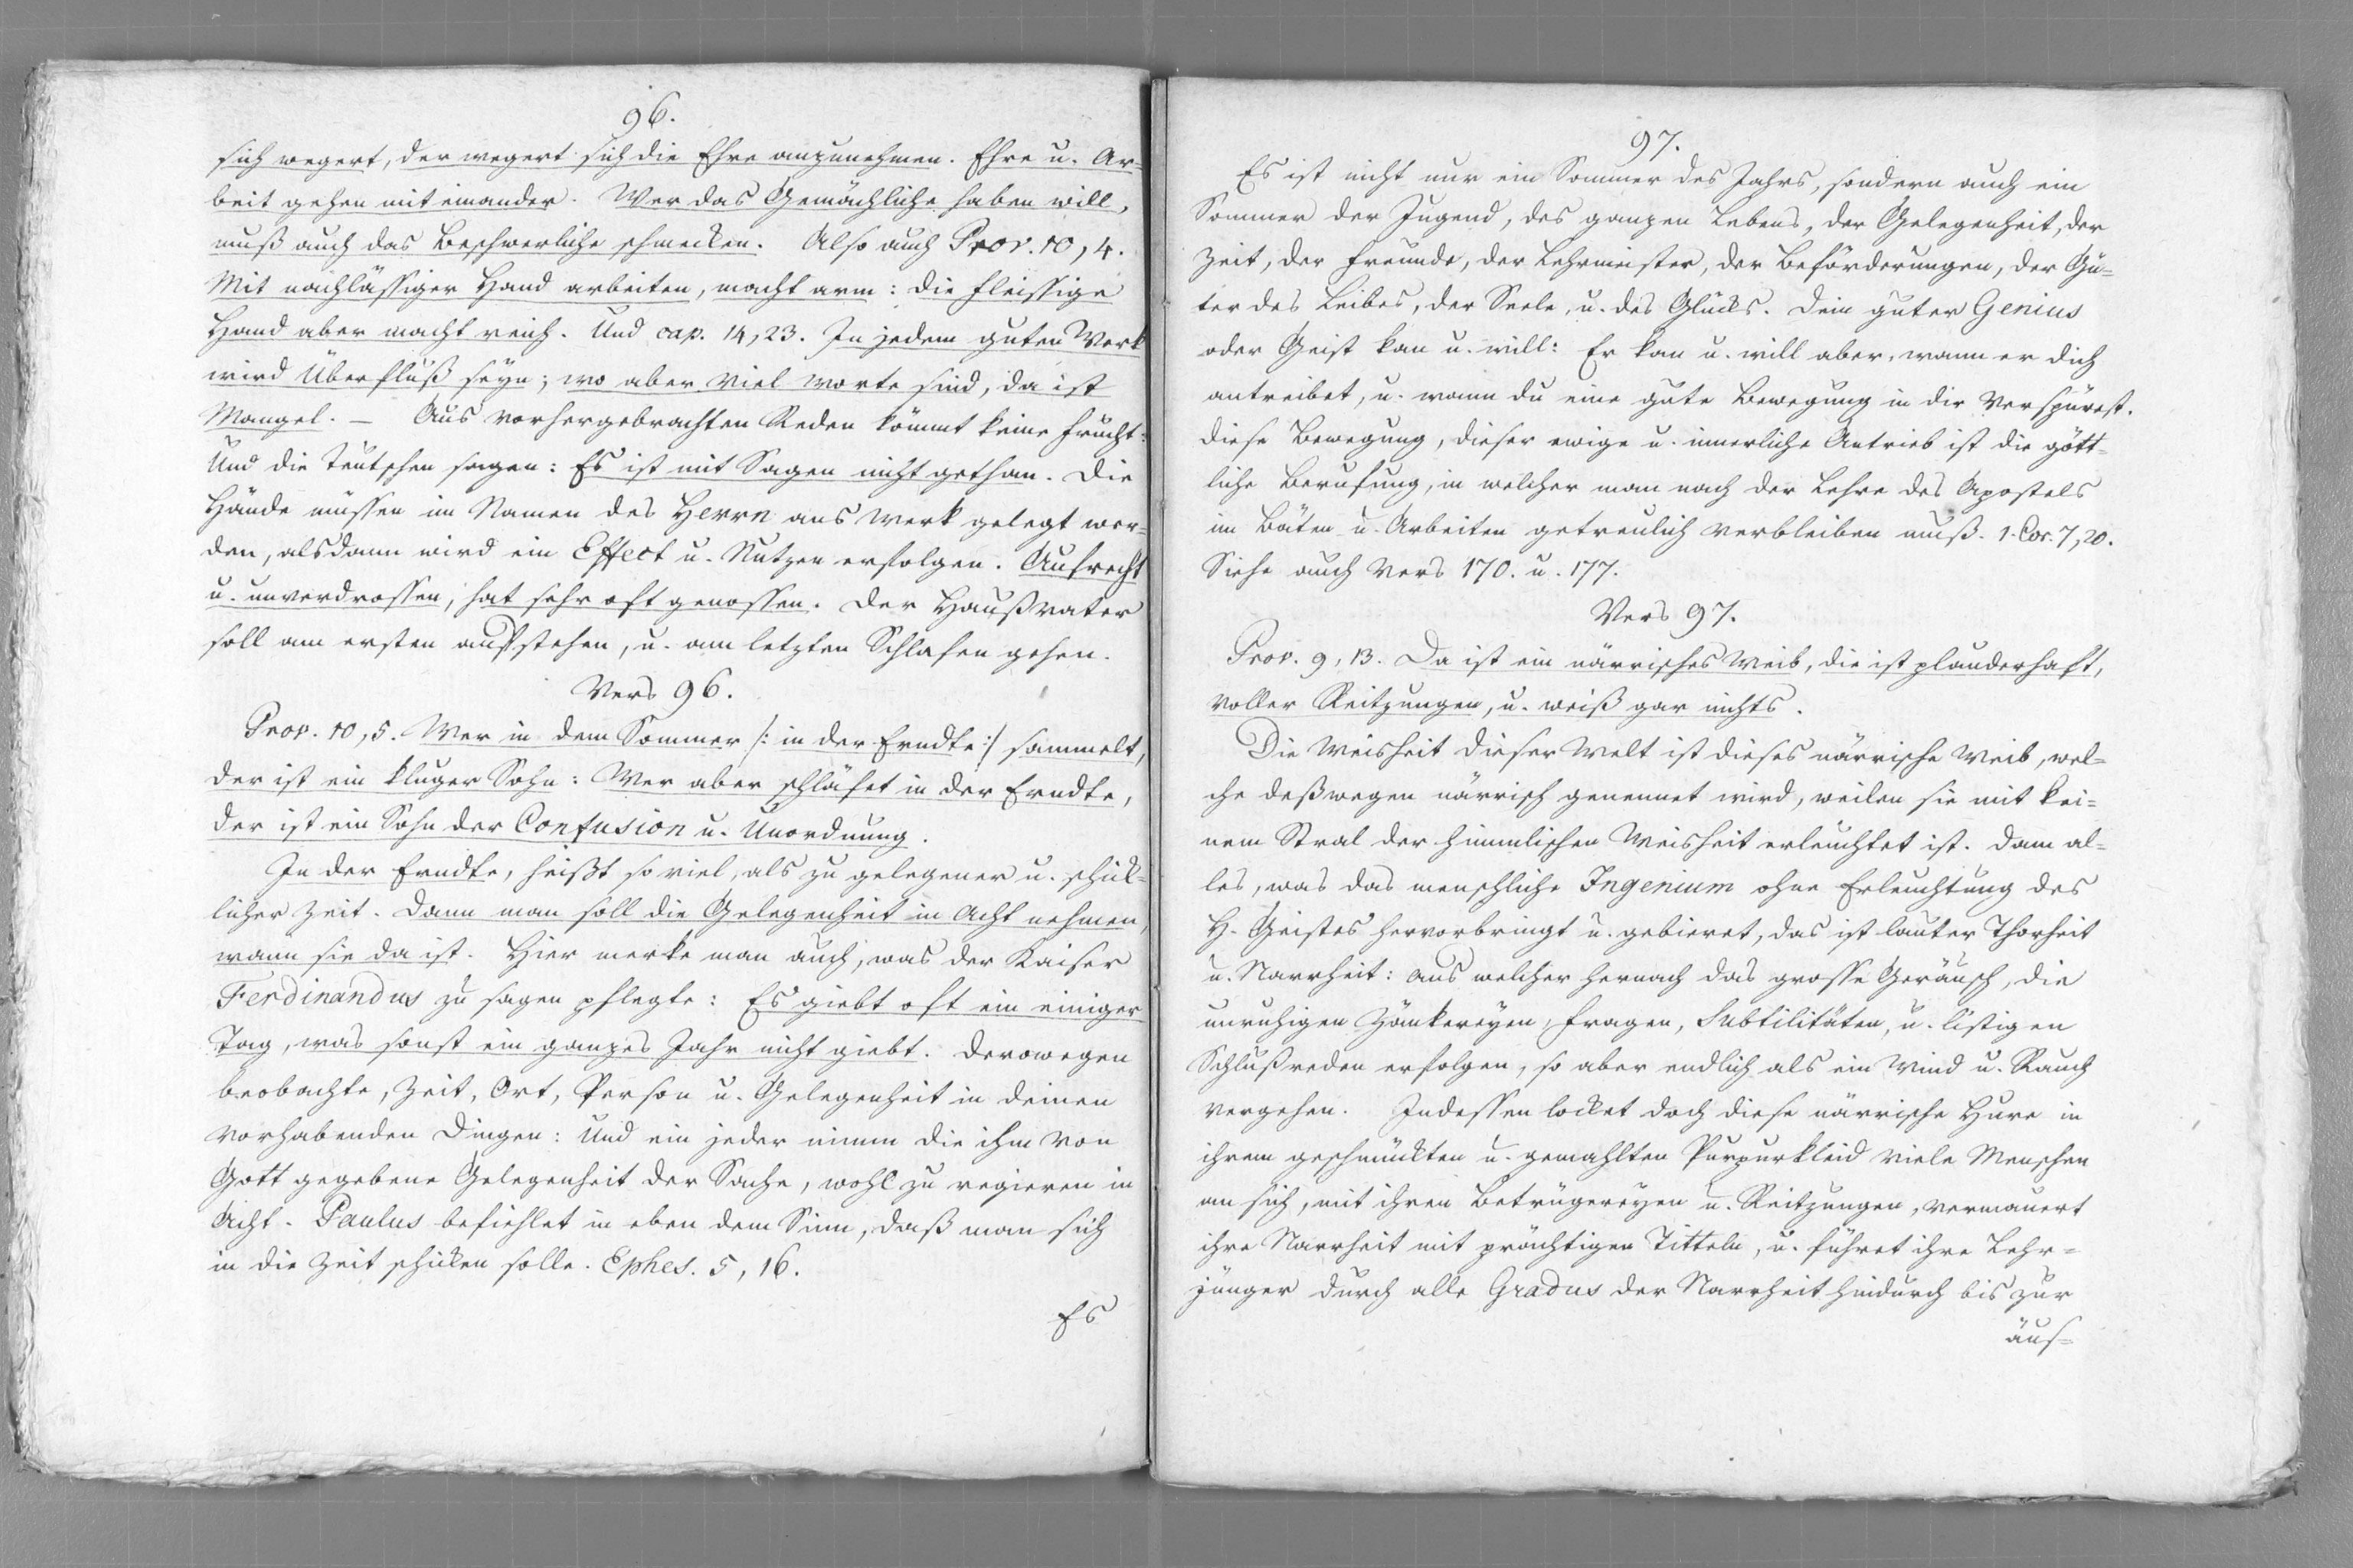 96.
sich wegert, der wegert sich die Ehre anzunehmen. Ehre u. Ar=
beit gehen mit einander. Wer das Gemächliche haben will,
muß auch das Beschwerliche schmecken. Also auch Prov. 10, 4.
Mit nachläßiger Hand arbeiten, macht arm: die fleissige
Hand aber macht reich. Und cap. 14, 23. In jedem guten Werk
wird Überfluß seyn; wo aber viel Worte sind, da ist
Mangel. – Aus vorhergebrachten Reden kömmt keine Frucht:
Und die Teutschen sagen: Es ist mit Sagen nicht gethan. Die
Hände müssen im Namen des Herrn ans Werk gelegt wer=
den, alsdann wird ein Effect u. Nutzen erfolgen. Aufrecht
u. unverdrossen, hat sehr oft genossen. Der Haußvater
soll am ersten aufstehen, u. am letzten Schlafen gehen.
Vers 96.
Prov. 10, 5. Wer in dem Sommer /: in der Erndte :/ sammelt,
der ist ein kluger Sohn: Wer aber schläfet in der Erndte,
der ist ein Sohn der Confusion u. Unordnung.
In der Erndte, heißt so viel, als zu gelegener u. schik=
licher Zeit. Dann man soll die Gelegenheit in Acht nehmen,
wann sie da ist. Hier merke man auch, was der Kaiser
Ferdinandus zu sagen pflegte: Es giebt oft ein einiger
Tag, was sonst ein ganzes Jahr nicht giebt. Derowegen
beobachte, Zeit, Ort, Person u. Gelegenheit in deinen
vorhabenden Dingen: Und ein jeder nimm die ihm von
Gott gegebene Gelegenheit der Sache, wohl zu regieren in
Acht. Paulus befiehlet in eben dem Sinn, daß man sich
in die Zeit schicken solle. Ephes. 5, 16.
Es
97.
Es ist nicht nur ein Sommer des Jahrs, sondern auch ein
Sommer der Jugend, des ganzen Lebens, der Gelegenheit, der
Zeit, der Freunde, der Lehrmeister, der Beförderungen, der Gü=
ter des Leibes, der Seele, u. des Glücks. Dein guter Genius
oder Geist kan u. will: Er kan u. will aber, wann er dich
antreibet, u. wann du eine gute Bewegung in dir verspürest.
Diese Bewegung, dieser ewige u. innerliche Antrieb ist die gött=
liche Berufung, in welcher man nach der Lehre des Apostels
im Bäten u. Arbeiten getreulich verbleiben muß. 1. Cor. 7, 20.
Siehe auch Vers 170. u. 177.
Vers 97.
Prov. 9, 13. Da ist ein närrisches Weib, die ist plauderhaft,
voller Reitzungen, u. weiß gar nichts.
Die Weisheit dieser Welt ist dieses närrische Weib, wel=
che deßwegen närrisch genennet wird, weilen sie mit kei=
nem Stral der himmlischen Weisheit erleuchtet ist. Dann al=
les, was das menschliche Ingenium ohne Erleuchtung des
H. Geistes hervorbringt u. gebieret, das ist lauter Thorheit
u. Narrheit: aus welcher hernach das grosse Geräusch, die
unruhigen Zänkereyen, Fragen, Subtilitäten, u. listigen
Schlußreden erfolgen, so aber endlich als ein Wind u. Rauch
vergehen. Indessen locket doch diese närrische Hure in
ihrem geschmückten u. gemahlten Purpurkleid viele Menschen
an sich, mit ihren Betrügereyen u. Reitzungen, vermauert
ihre Narrheit mit prächtigen Titteln, u. führet ihre Lehr=
jünger durch alle Gradus der Narrheit hindurch bis zur
äus=